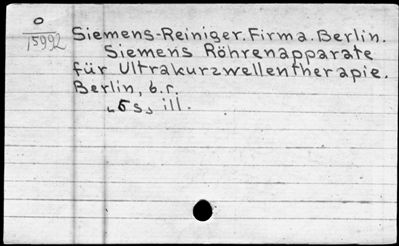 O
15992
Siemens-Reiniger. Firma. Berlin.
Siemens Röhrenapparate
für Ultrakurzwellentherapie.
Berlin, b.r.
"5 s" ill.